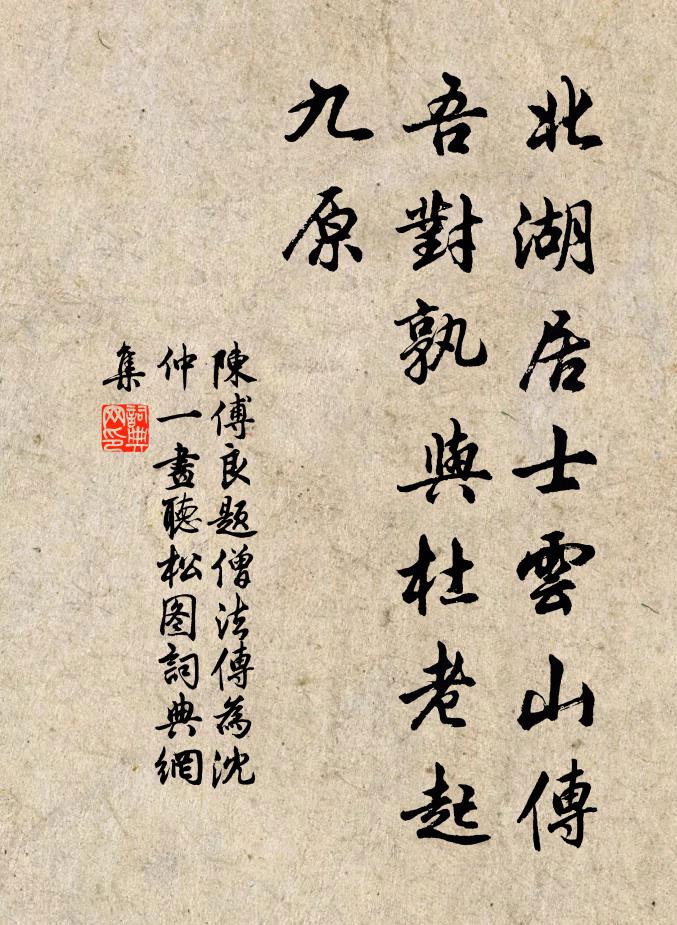 北湖居士雲山傳
吾對孰與杜老起
九原
陳傅良題僧法傳為沈
仲一畫聽松图詞典網
集
詞典网印